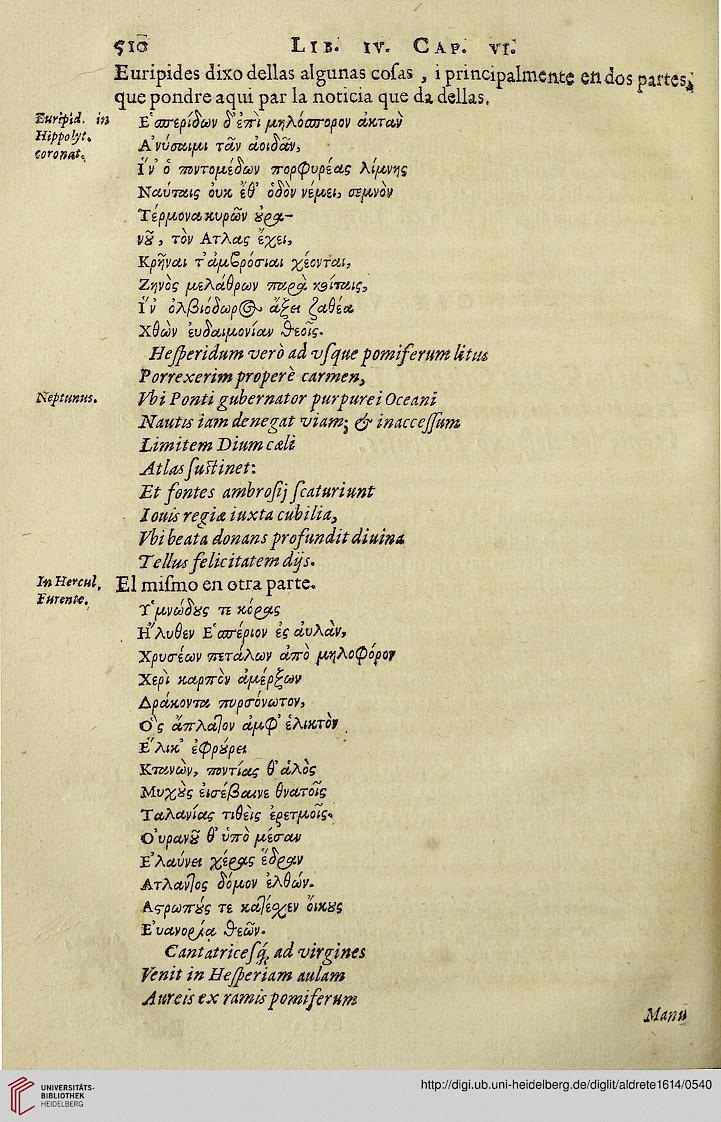 510 LIB. IV. CAP. VI.
Euripides dixo dellas algunas cosas, i principalmente en dos partes,
que pondre aqui par la noticia que da dellas.
Euripid. in
Hippolyt.
coronat.
Ἑσπερίδων δ' ἐπὶ μηλόσπορον ἀκτὰν
Ἀνύσαιμι τᾶν ἀοιδᾶν,
Ἵν' ὁ ποντομέδων πορφυρέας λίμνης
Ναύταις οὐκ ἔθ' ὁδὸν νέμει, σεμνὸν
Τέρμονα κυρῶν ȣ̓ρα-
νȣ͂, τὸν Ατλας ἔχει,
Κρῆναι τ' ἀμβρόσιαι χέονται,
Ζηνὸς μελάθρων παρὰ κοίταις,
Ἵν' ὀλβιόδωρος ἄξει ζαθέα
Χθὼν ἐυδαιμονίαν θεοῖς.
Hesperidum verò ad vsque pomiferum litus
Porrexerim properè carmen,
Neptunus.
Vbi Ponti gubernator purpurei Oceani
Nautis iam denegat viam; & inaccessum
Limitem Dium cæli
Atlas sustinet:
Et fontes ambrosij scaturiunt
Iouis regiæ iuxta cubilia,
Vbi beata donans profundit diuina
Tellus felicitatem dijs.
In Hercul.
Furente.
El mismo en otra parte.
Ὑμνώδȣς τε κόρας
Ἤλυθεν Ἑσπέριον ἐς ἀυλὰν,
Χρυσέων πετάλων ἀπὸ μηλοφόρον
Χερὶ καρπὸν ἀμέρξων
Δράκοντα πυρσόνωτον,
Ὃς ἄπλατον ἀμφ' ἑλικτὸν
Ἕλικ' ἐφρȣ́ρει
Κτανὼν, ποντίας θ' ἁλὸς
Μυχȣ̀ς ἐισέβαινε θνατοῖς
Ταλανίας τιθεὶς ἐρετμοῖς.
Ὀυρανȣ͂ θ' ὑπὸ μέσαν
Ἐλαύνει χέρας ἕδραν
Ατλαντος δόμον ἐλθών.
Αστρωπȣ́ς τε κατέσχεν ὄικȣς
Ἐυανορίᾳ θεῶν.
Cantatricesq́; ad virgines
Venit in Hesperiam aulam
Aureis ex ramis pomiferum
Manu
UNIVERSITÄTS-
BIBLIOTHEK
HEIDELBERG
http://digi.ub.uni-heidelberg.de/diglit/aldrete1614/0540